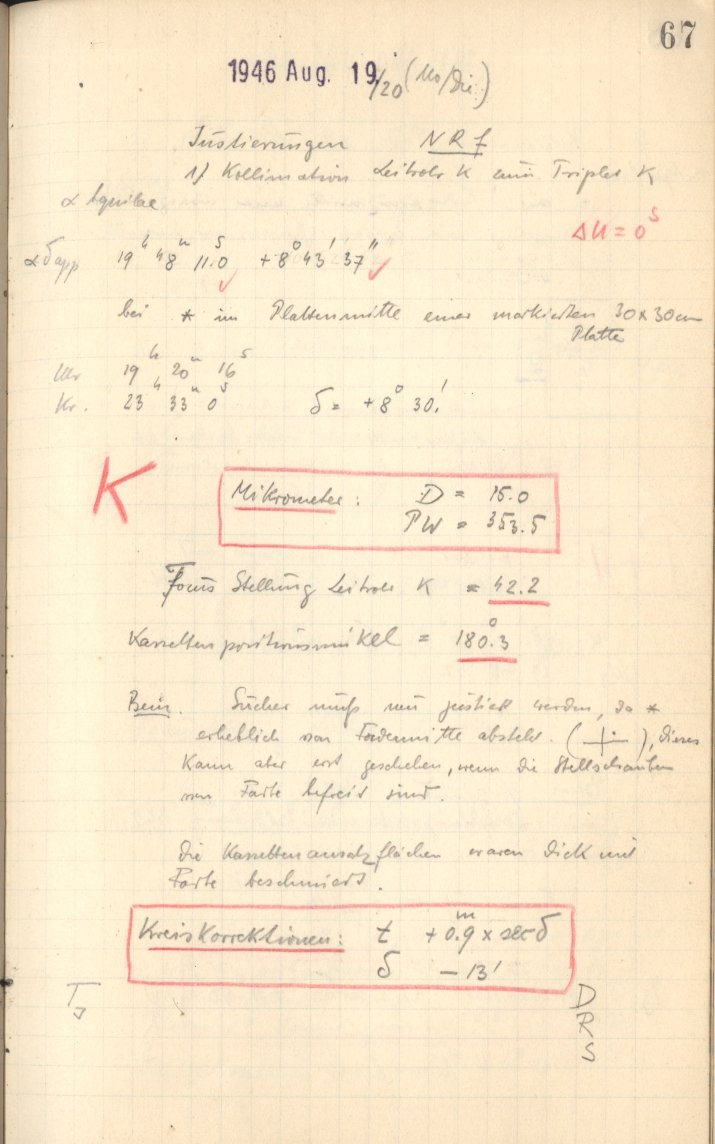 67
1946 Aug. 19./20 (Mo/Die.)
Justierungen NRf
1) Kollimation Leitrohr K zum Triplet K
α Aquilae
ΔU = 0ˢ
αδ app 19ʰ 48ᵐ 11.0ˢ +8° 43' 37"
bei * in Plattenmitte einer markierten 30 x 30 cm
Platte
Uhr 19ʰ 20ᵐ 16ˢ
Kr. 23ʰ 33ᵐ 0ˢ δ = +8° 30'
K
Mikrometer: D = 15.0
PW = 353.5
Focus Stellung Leitrohr K = 42.2
Kassettenpositionswinkel = 180.°3
Bem. Sucher muß neu justiert werden, da *
erheblich von Fadenmitte absteht. ( ), dieses
kann aber erst geschehen, wenn die Stellschrauben
von Farbe befreit sind.
Die Kassettenansatzflächen waren dick mit
Farbe beschmiert.
Kreiskorrektionen: t +0.ᵐ9 x sec δ
δ – 13'
DRS